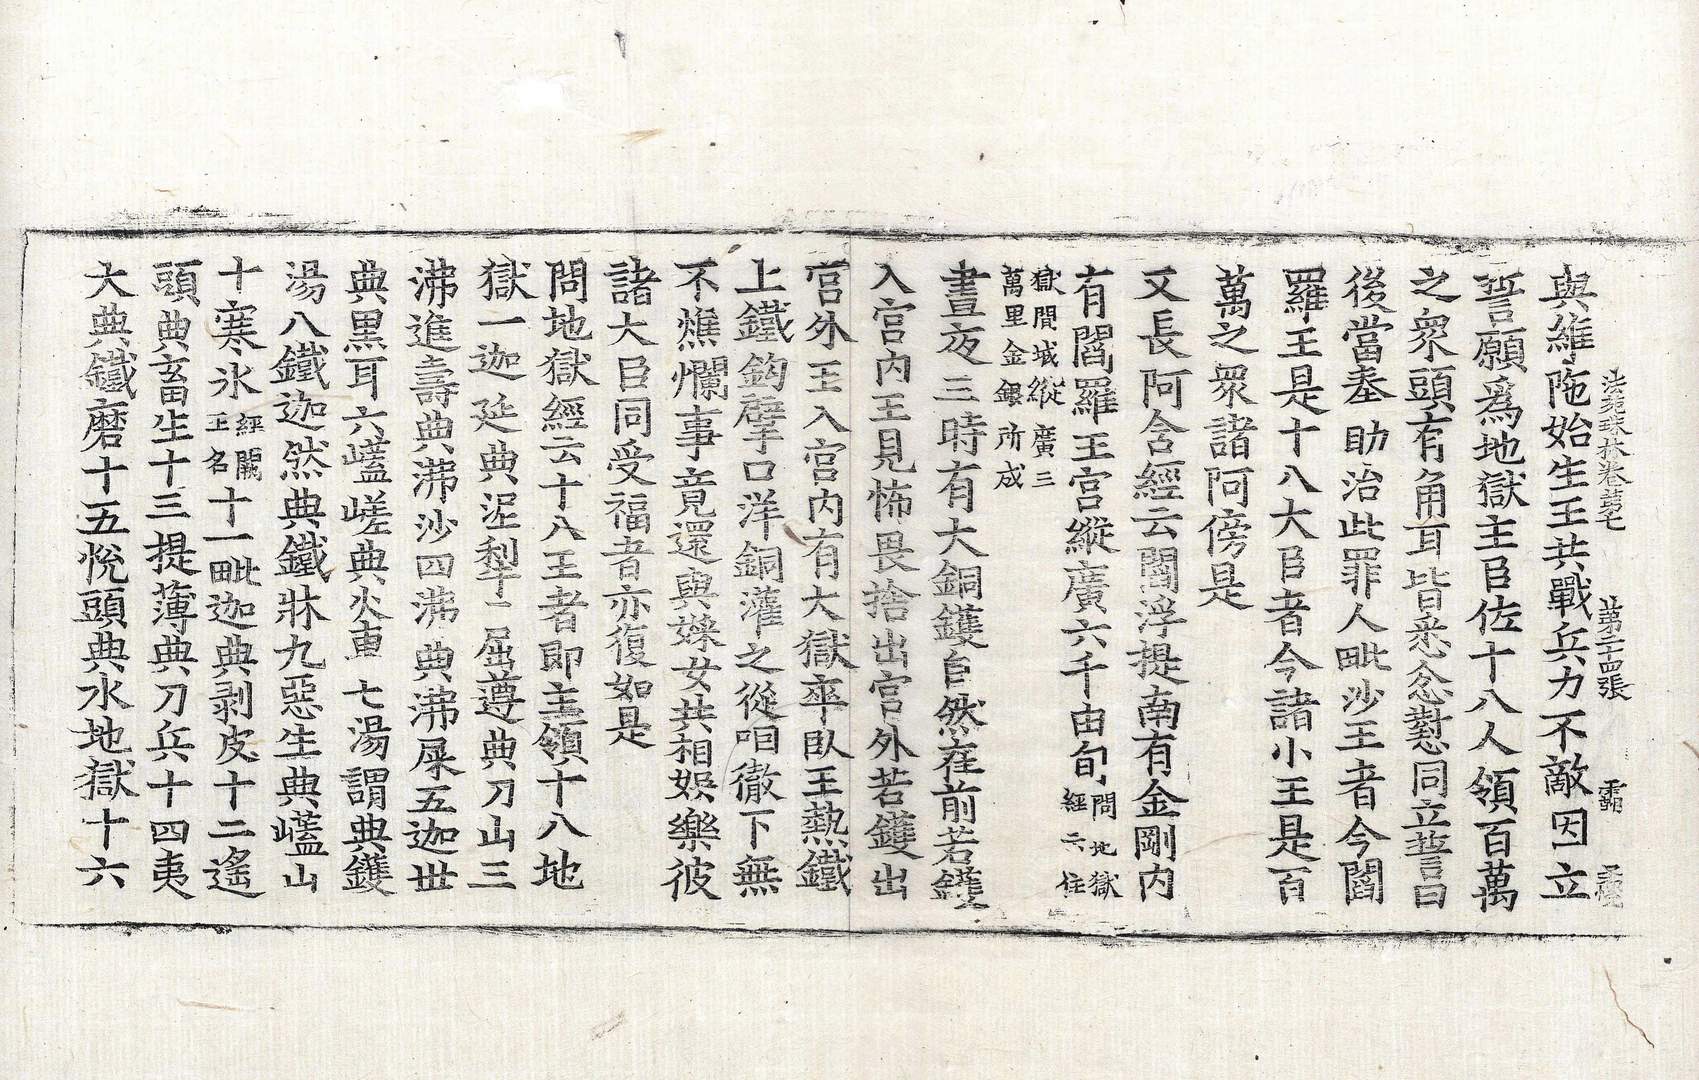 法苑珠林卷第七 第二十四張 覇
與維陁始生王共戰兵力不敵因立
誓願爲地獄主臣佐十八人領百萬
之衆頭有角耳皆悉忿懟同立誓曰
後當奉助治此罪人毗沙王者今閻
羅王是十八大臣者今諸小王是百
萬之衆諸阿傍是
又長阿含經云閻浮提南有金剛內
有閻羅王宮縱廣六千由旬問地獄
經云住
獄間城縱廣三
萬里金銀所成
晝夜三時有大銅鑊自然在前若鑊
入宮內王見怖畏捨出宮外若鑊出
宮外王入宮內有大獄卒臥王熱鐵
上鐵鉤擘口洋銅灌之從咽徹下無
不燋爛事竟還與婇女共相娛樂彼
諸大臣同受福者亦復如是
問地獄經云十八王者即主領十八地
獄一迦延典泥犁二屈尊典刀山三
沸進壽典沸沙四沸典沸屎五迦世
典黑耳六𡾟嵯典火車七湯謂典鑊
湯八鐵迦然典鐵牀九惡生典𡾟山
十寒氷經闕
王名十一毗迦典剥皮十二遙
頭典畜生十三提薄典刀兵十四夷
大典鐵磨十五悅頭典水地獄十六